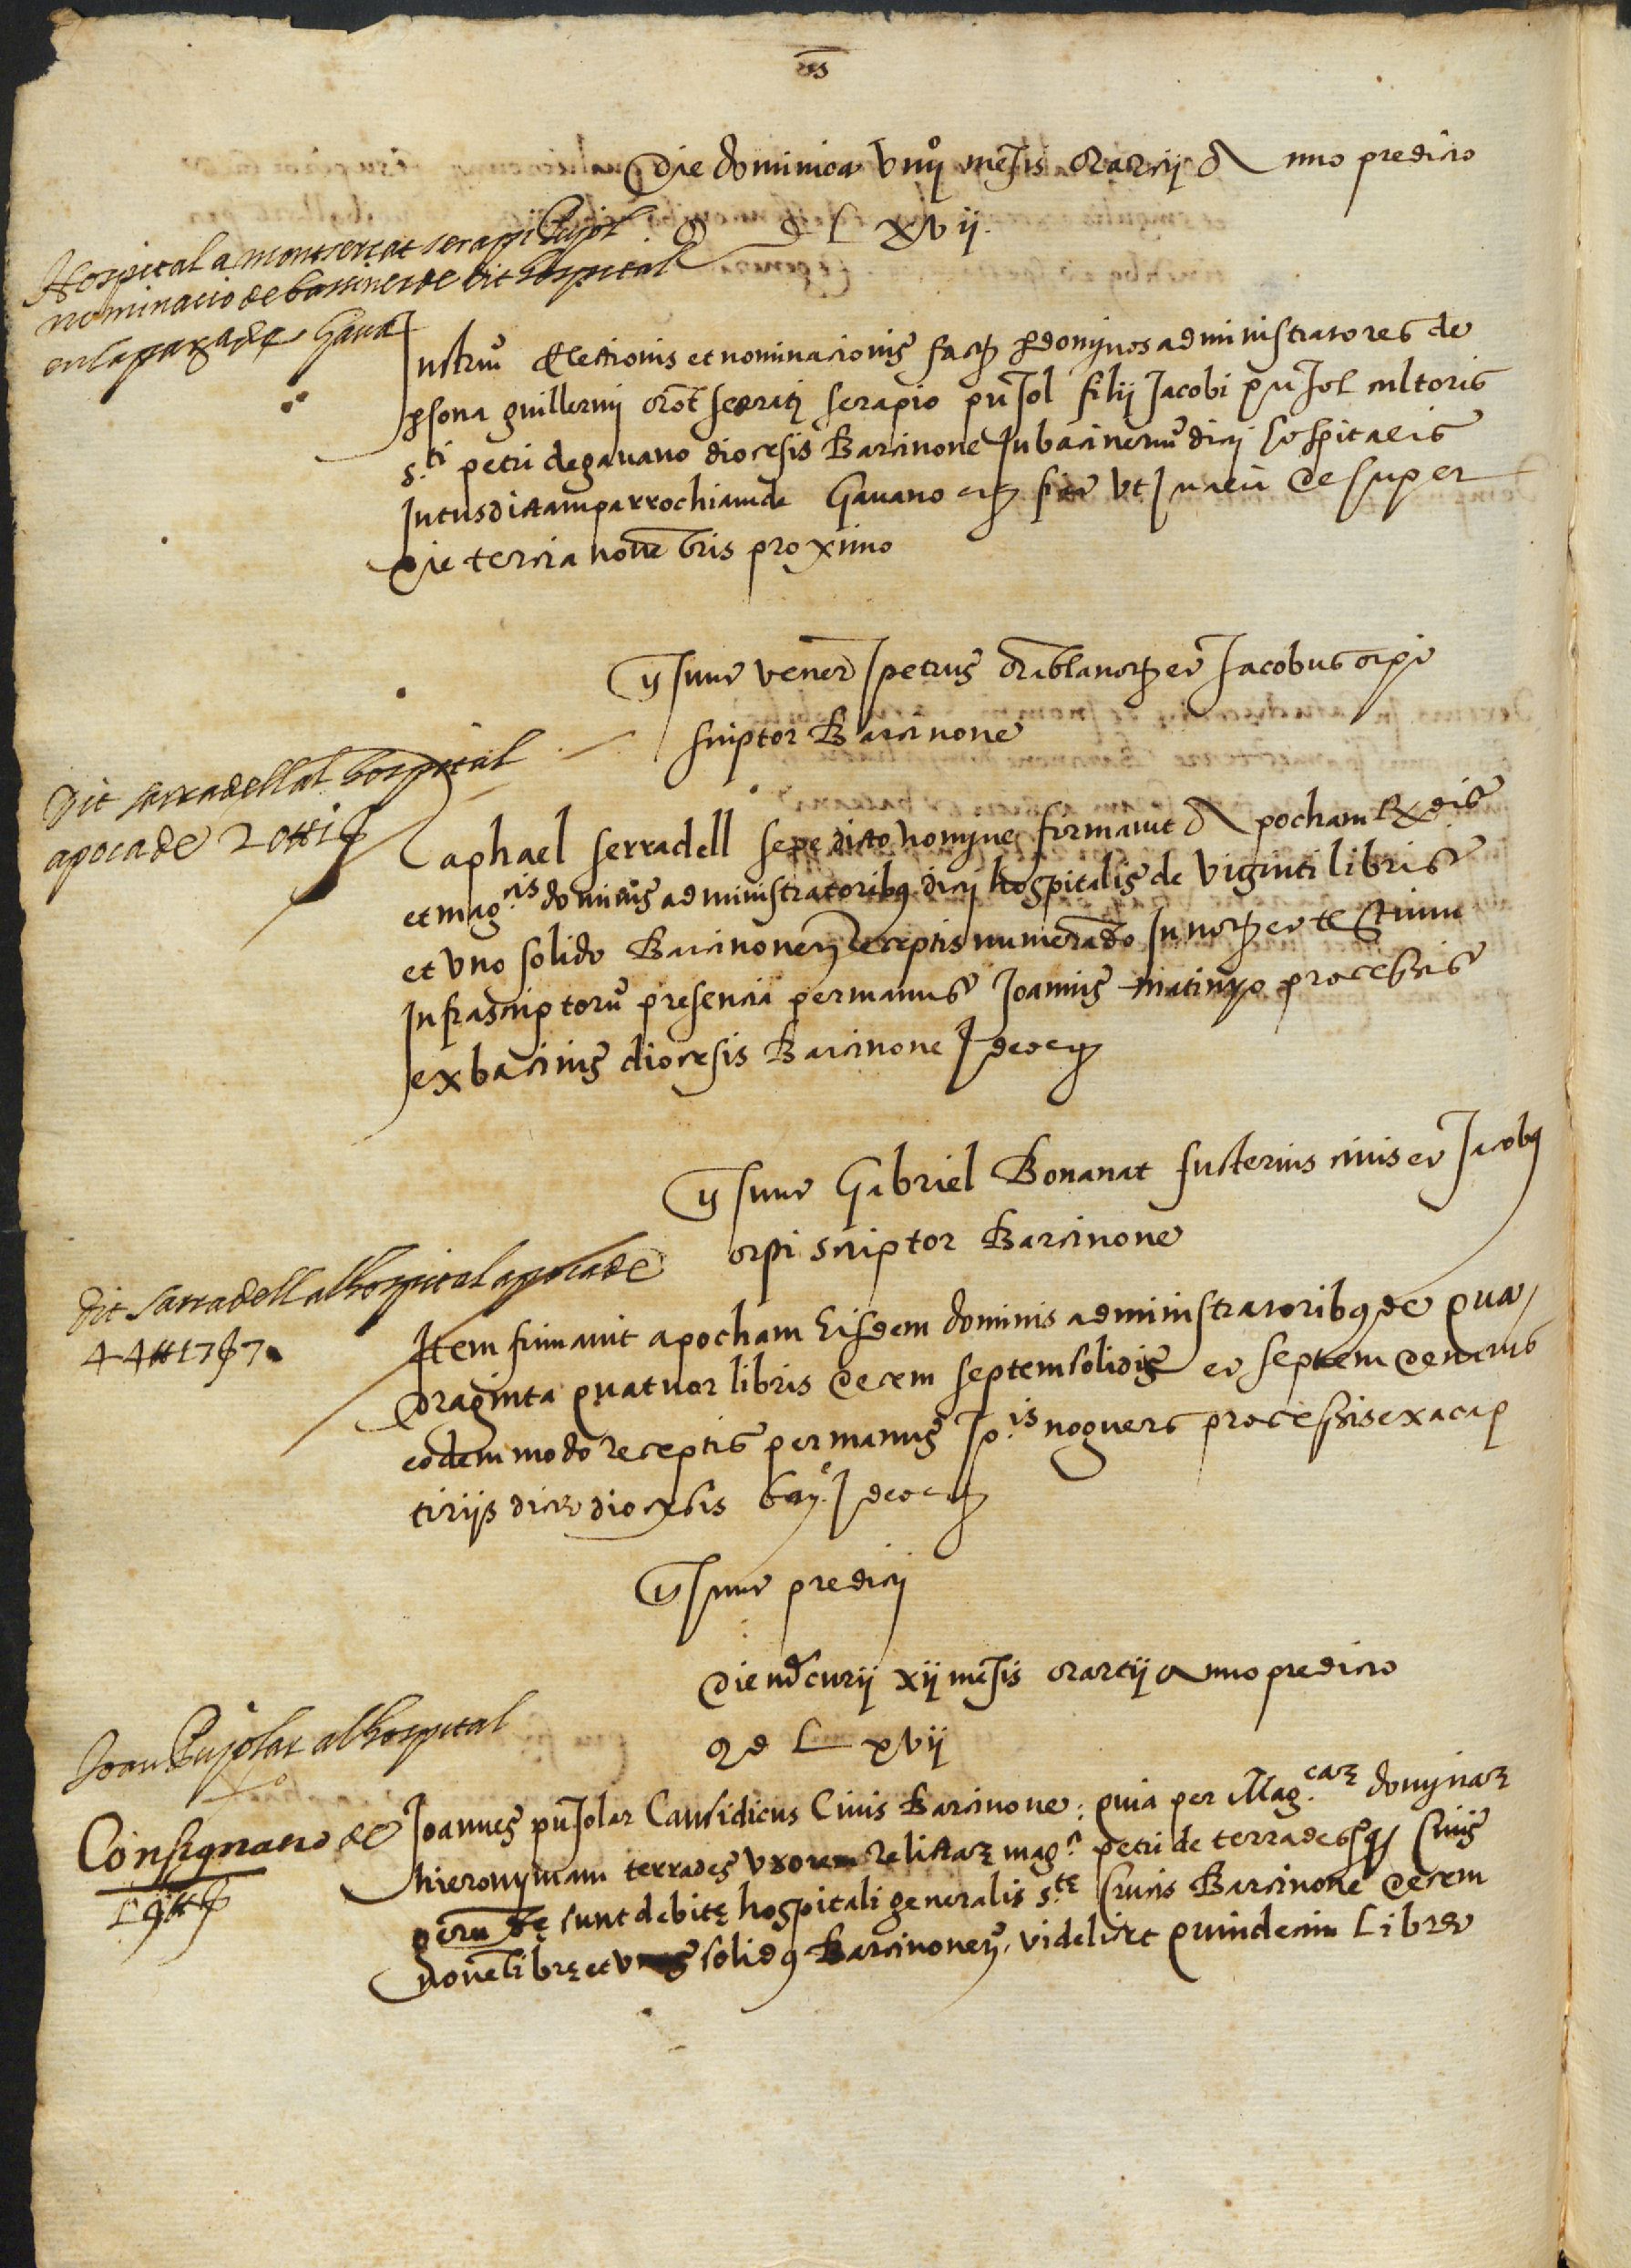 Die dominica Viiij mensis Marcij Anno predicto
M D L xvij.
Hospital a montserrat serapi Pujol
nominacio de baciner de dit hospital
en la parra de Gava
Instrum Electionis et nominacionis fact per dominos administratores de
persona guillermi Montserrati serapio puJol filij Jacobi puJol cultoris
s.ti petri de gavano diocesis Barcinone In bacinerium dicti hospitalis
Intus dictam parrochiam de Gavano etc
Die tercia novembris proximo
Testes sunt vener petrus Mablanch et Jacobus orpi
scriptor Barcinone
Dit sarradell al hospital
apoca de 20 tt 1 s
Raphael serradell sepedicto nomine firmavit Apocham Rdis
et mag.cis dominis administratoribus dicti hospitalis de viginti libris
et uno solido Barcinonen Receptis numerando In not et testium
Infrascriptorum presencia per manus Joannis processis
ex bacinis diocesis Barcinone Ideo etc
Testes sunt Gabriel Bonanat fusterius civis et Jacobus
orpi scriptor Barcinone
Dit sarradell al hospital apoca de
44 tt 17 s 7
Item firmavit apocham Eisdem dominis administratoribus de qua/
draginta quatuor libris decem septem solidis et septem denariis
eodem modo receptis per manus Jo.is noguers processis ex acap
tiriis dicte diocesis bar. Ideo etc
Testes sunt predicti
Die mercurij xij mensis Martij Anno predicto
M D L xvij
Joan Pujolar al hospital
Consignatio de
Joannes puJolar Causidicus Civis Barcinone: quia per Mag.cam dominam
hieronymam terrades uxorem relictam mag.ci petri de terrades civis
gerunde sunt debite hospitali generalis s.te crucis Barcinone decem
novem libre et unus solidus Barcinonen, videlicet quindecim Libre